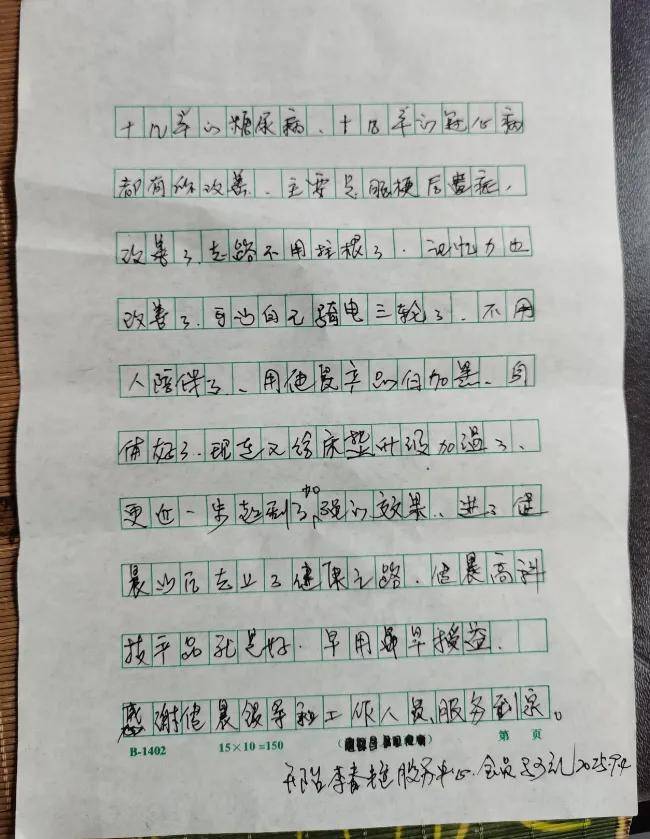 十几年的糖尿病、十几年的冠心病
都有所改善、主要是脑梗后遗症，
改善了、走路不用拄棍了．记忆力也
改善了．可以自己骑电三轮了、不用
人陪伴了、用健晨产品何加墨、身
体好了、现在又给床垫升级加温了、
更近一步起到了加强的效果、进了健
晨以后走上了健康之路、健晨高科
技产品就是好．早用早受益．
感谢健晨领导和工作人员、服务到家。
B-1402 15×10=150 第 页
李春 服务中心．会员 2025.9.4